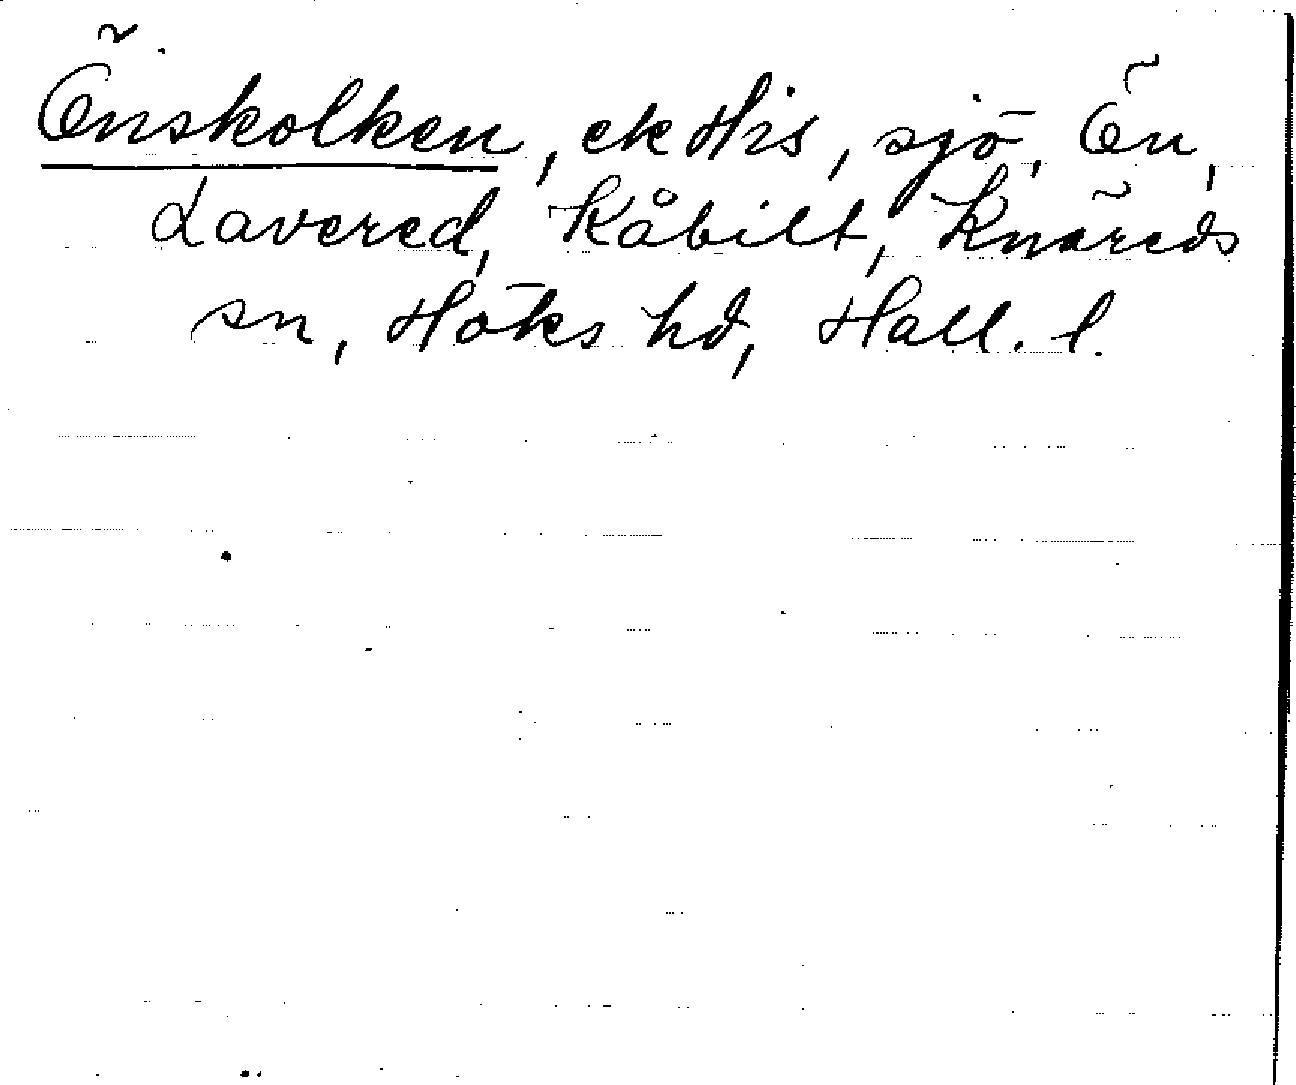 Önskolken, ek His, sjö, Ön,
Lavered, Kåbilt, Knäreds
sn, Höks hd, Hall. l.